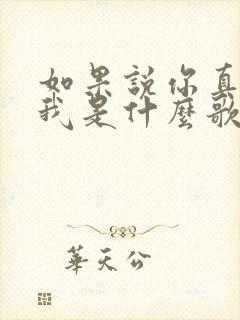 如果說你真
我是什麼歌
華天公